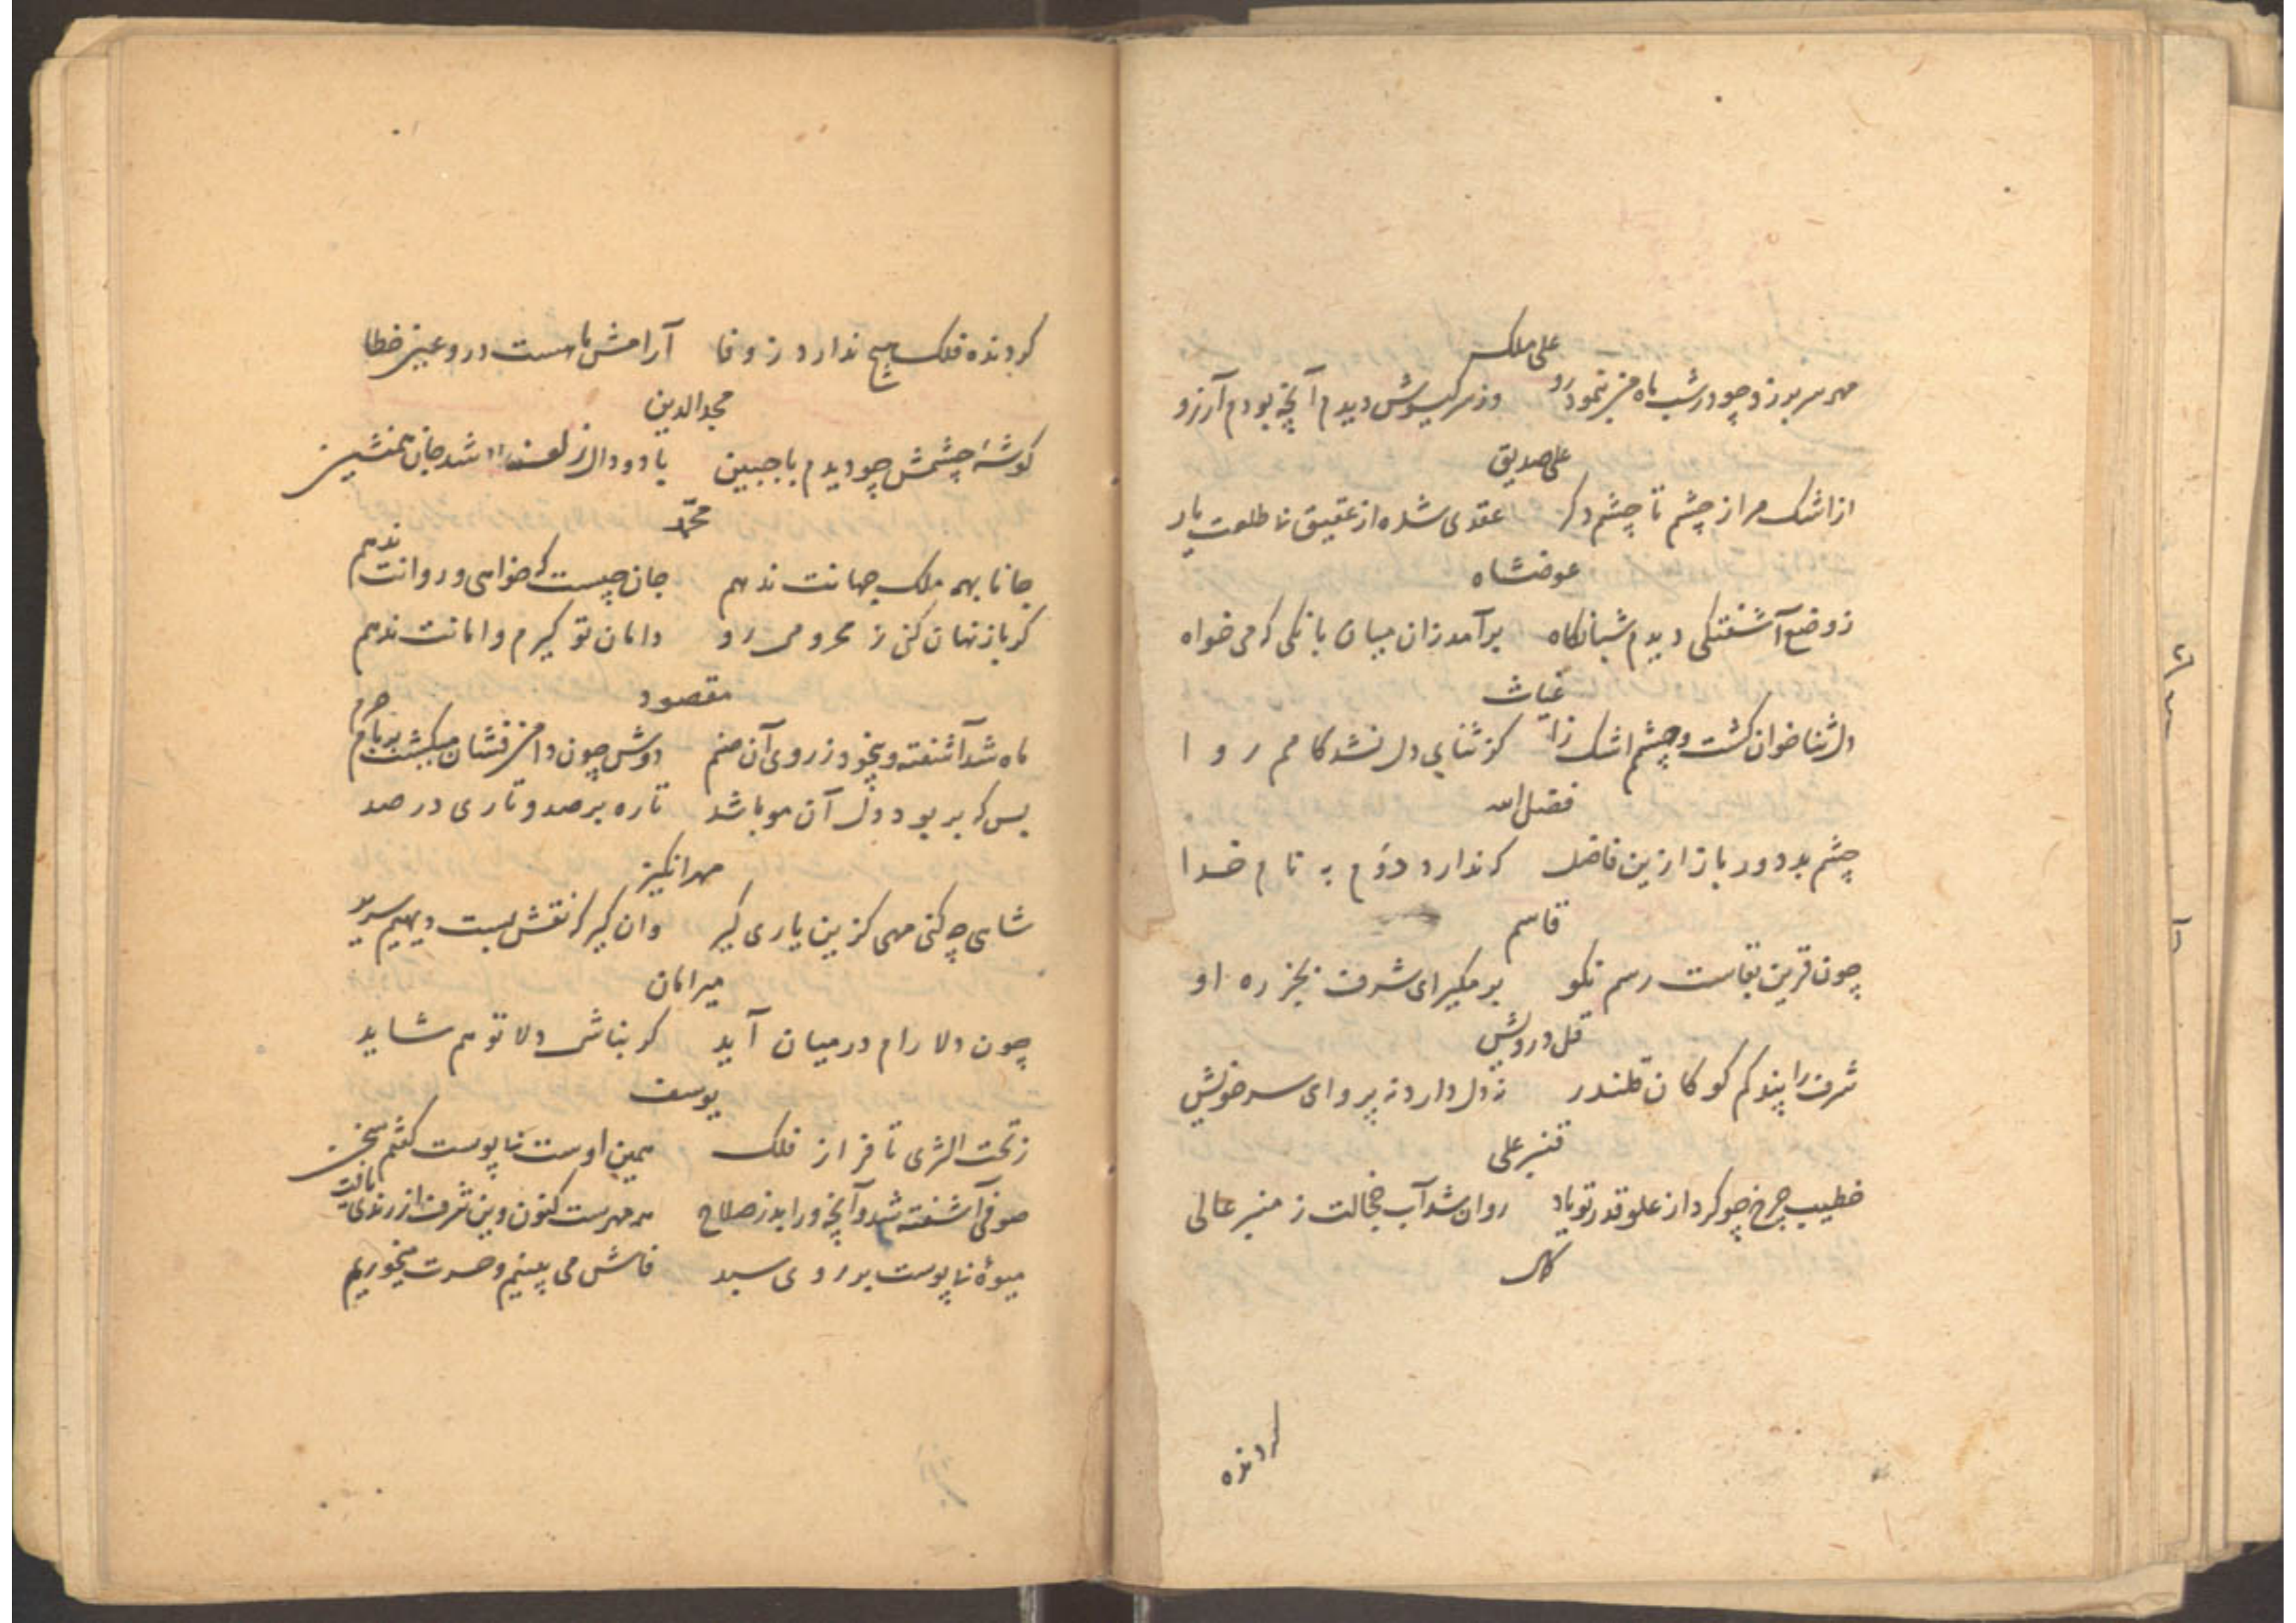 علی ملک
مهر سر بر زد چو در شب ماه من بنمود رو وز سر گیسوش دیدم آنچه بودم آرزو
علی صدیق
از اشک مرا ز چشم تا چشم دگر عقدی شده از عقیق نا طلعت یار
عوضشاه
ز وضع آشفتگی دیدم شبانگاه برآمد زان میان بانگی که می خواه
غیاث
دل ثنا خوان گشت و چشم اشک زا کز ثنای دل نشد کامم روا
فضل الله
چشم بد دور باز ازین فاضل که ندارد دوم به نام خدا
قاسم
چون قرین بقاست رسم نکو بر مگیر ای شرف بجز ره او
قل درویش
شرف را پند کم گو کان قلندر نه دل دارد نه پروای سر خویش
قنبر علی
خطیب چرخ چو کرد از علو قدر تو یاد روان شد آب خجالت ز منبر عالی
کمال
گردنده
گردنده فلک هیچ ندارد ز وفا آرامش ما هست درو عین خطا
مجدالدین
گوشهٔ چشمش چو دیدم با جبین با دو دال زلف شد جان همنشین
محمد
جانا بهمه ملک جهانت ندهم جان چیست که خواهی و روانت ندهم
گر باز نهان کنی ز محرومی رو دامان تو گیرم و امانت ندهم
مقصود
ماه شد آشفته و بیخود ز روی آن صنم دوش چون دامن فشان میگشت بر بام حرم
بس که بر بود دل آن مو باشد تاره بر صد و تاری در صد
مهرانگیز
شاهی چه کنی مهی گزین یاری گیر وان گیر که نقش بست دیهیم سریر
میرامان
چون دلا رام در میان آید گر بناشی دلا تو هم شاید
یوسف
ز تحت الثری تا فراز فلک همین اوست نا پوست گفتم سخن
صوفی آشفته شد و آنچه ورا بد ز صلاح همه مهرست کنون وین شرف از رندی یافت
میوهٔ نا پوست بر روی سبد فاش می بینیم و حسرت میخوریم